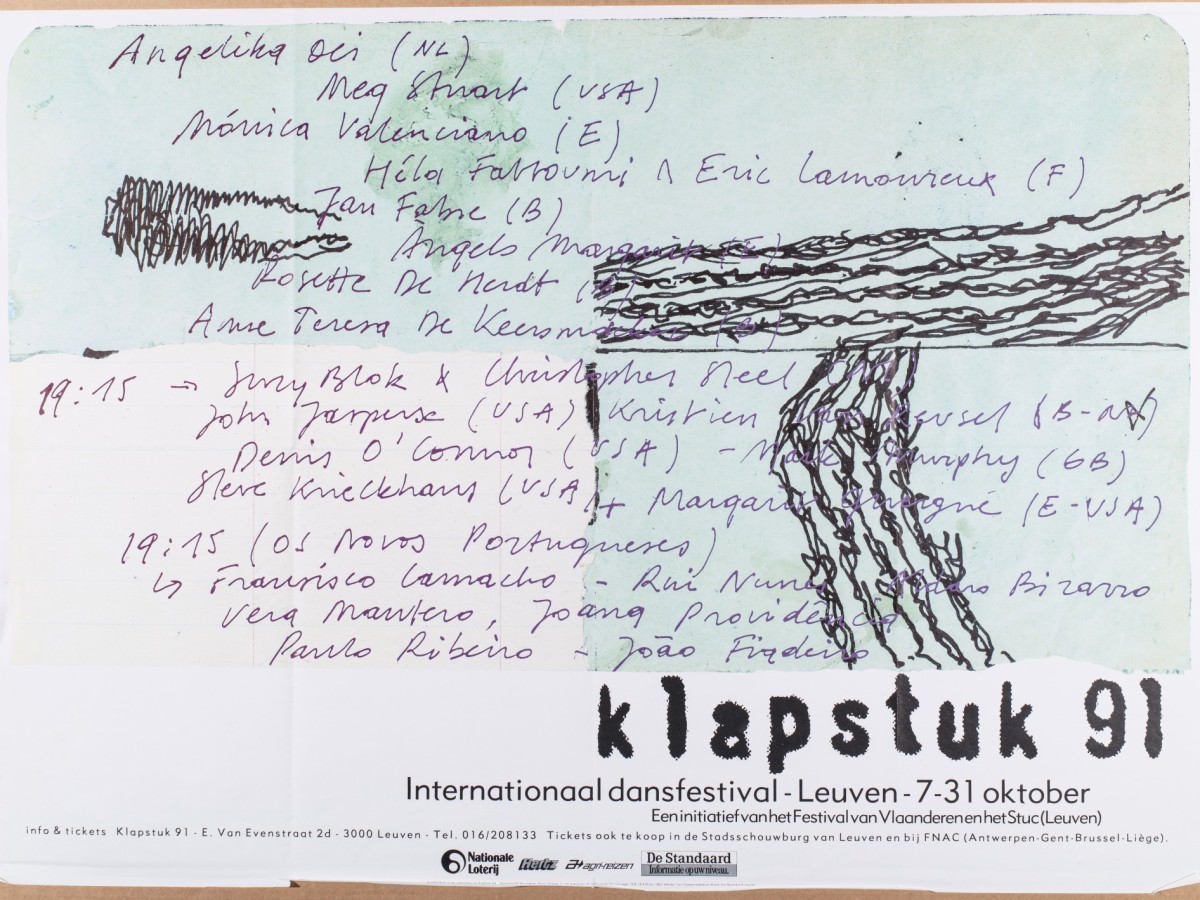 Angelika Oei (NL)
Meg Stuart (USA)
Mónica Valenciano (E)
Héla Fattoumi & Eric Lamoureux (F)
Jan Fabre (B)
Àngels Margarit (E)
Rosette De Herdt (B)
Anne Teresa De Keersmaeker (B)
19:15 → Suzy Blok & Christopher Steel
John Jasperse (USA) Kristien Van Reusel (B-NL)
Denis O'Connor (USA) - Mark Murphy (GB)
Steve Krieckhaus (USA) + Margarita Guergué (E-USA)
19:15 (Os Novos Portugueses)
↳ Francisco Camacho - Rui Nunes Madro Bizarro
Vera Mantero, Joana Providência
Paulo Ribeiro - João Fiadeiro
klapstuk 91
Internationaal dansfestival - Leuven - 7-31 oktober
Een initiatief van het Festival van Vlaanderen en het Stuc (Leuven)
info & tickets Klapstuk 91 - E. Van Evenstraat 2d - 3000 Leuven - Tel. 016/208133 Tickets ook te koop in de Stadsschouwburg van Leuven en bij FNAC (Antwerpen-Gent-Brussel-Liège).
Nationale Loterij Hertz agri-reizen De Standaard
Informatie op uw niveau.